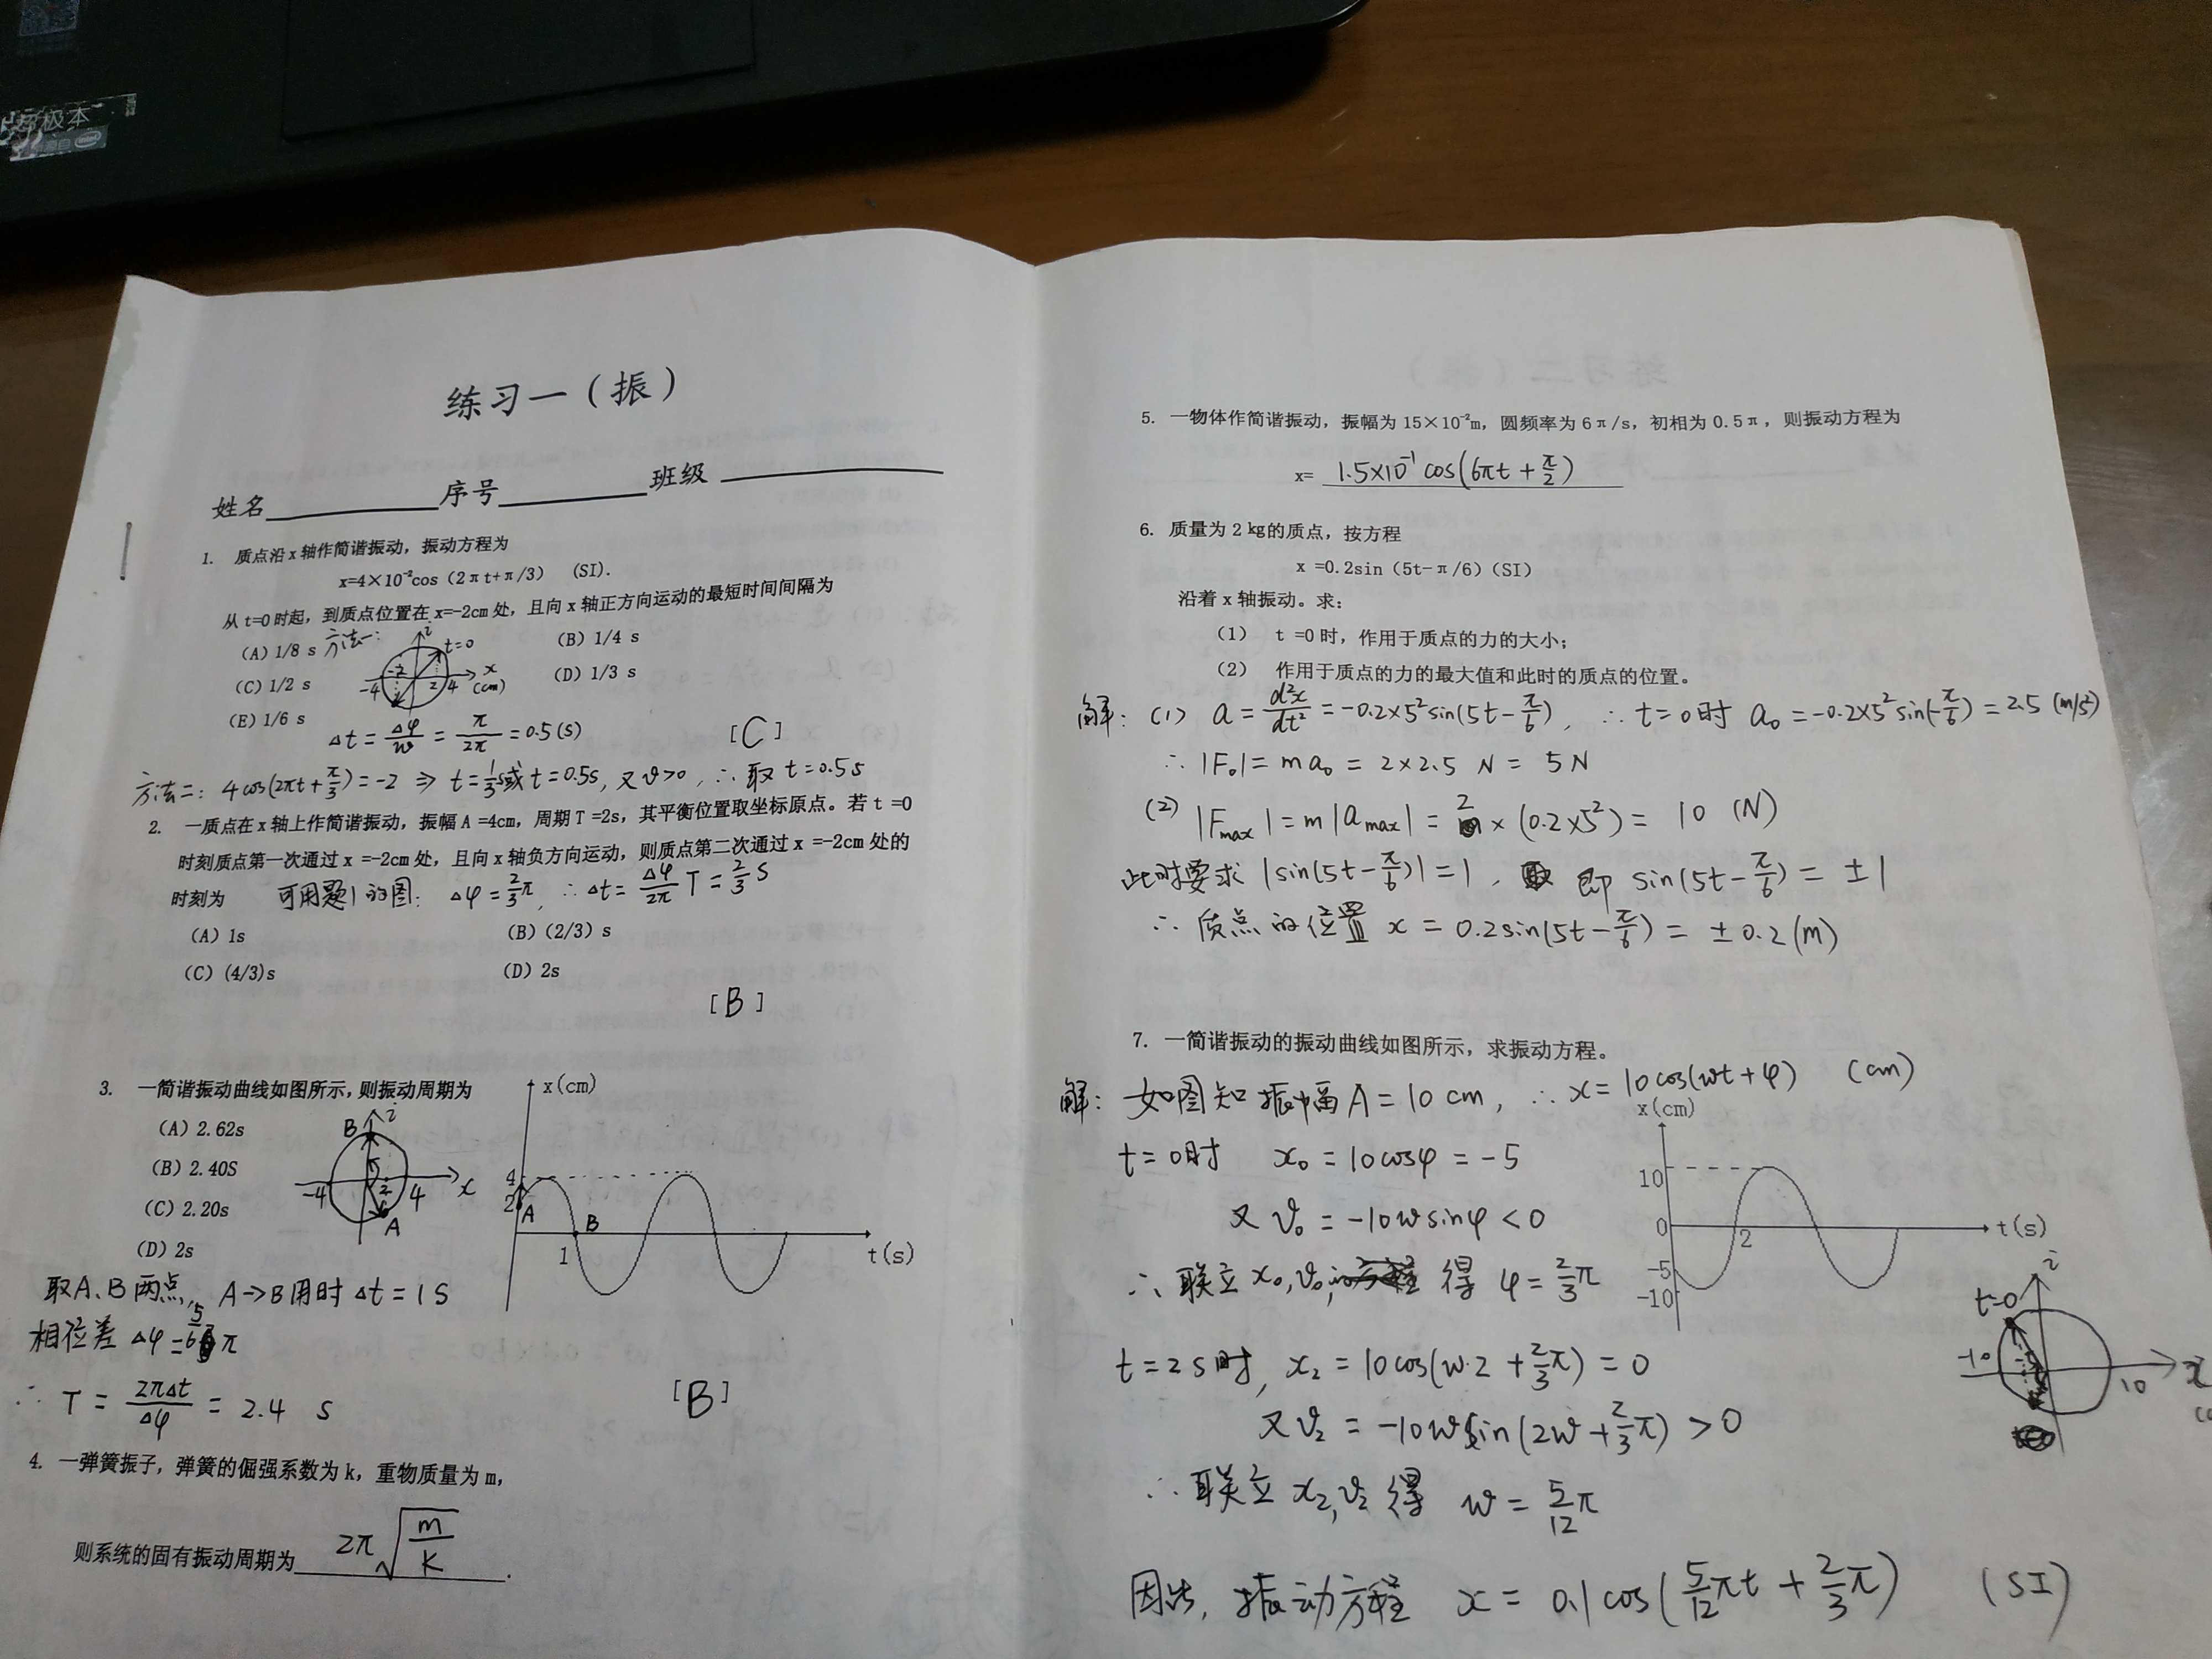 练习一（振）
姓名 序号 班级
1. 质点沿x轴作简谐振动，振动方程为
x=4×10⁻²cos（2πt+π/3） (SI).
从t=0时起，到质点位置在x=-2cm处，且向x轴正方向运动的最短时间间隔为
(A) 1/8 s (B) 1/4 s
(C) 1/2 s (D) 1/3 s
(E) 1/6 s [C]
方法一：
t=0
-4 -2 2 4 x (cm)
Δt = Δφ/w = π/2π = 0.5(s)
方法二： 4cos(2πt+π/3) = -2 ⇒ t=1/3s或 t=0.5s, 又v>0, ∴取 t=0.5s
2. 一质点在x轴上作简谐振动，振幅A=4cm，周期T=2s，其平衡位置取坐标原点。若t=0
时刻质点第一次通过x=-2cm处，且向x轴负方向运动，则质点第二次通过x=-2cm处的
时刻为
可用题1的图： Δφ = 2/3π, ∴ Δt = Δφ/2π T = 2/3 s
(A) 1s (B) (2/3) s
(C) (4/3)s (D) 2s
[B]
3. 一简谐振动曲线如图所示，则振动周期为
(A) 2.62s
(B) 2.40S
(C) 2.20s
(D) 2s
B A -4 2 4 x
x(cm)
4
2 A
1 B
t(s)
取A、B两点， A→B用时 Δt=1S
相位差 Δφ = 5/6 π
∴ T = 2πΔt/Δφ = 2.4 s
[B]
4. 一弹簧振子，弹簧的倔强系数为k，重物质量为m，
则系统的固有振动周期为 2π√(m/k) .
5. 一物体作简谐振动，振幅为15×10⁻²m，圆频率为6π/s，初相为0.5π，则振动方程为
x= 1.5×10⁻¹cos(6πt+π/2)
6. 质量为2kg的质点，按方程
x=0.2sin（5t-π/6）(SI)
沿着x轴振动。求：
(1) t=0时，作用于质点的力的大小；
(2) 作用于质点的力的最大值和此时的质点的位置。
解：(1) a = d²x/dt² = -0.2×5²sin(5t-π/6), ∴ t=0时 a₀ = -0.2×5²sin(-π/6) = 2.5 (m/s²)
∴ |F₀| = ma₀ = 2×2.5 N = 5N
(2) |Fmax| = m|amax| = 2×(0.2×5²) = 10 (N)
此时要求 |sin(5t-π/6)| = 1, 即 sin(5t-π/6) = ±1
∴ 质点的位置 x = 0.2sin(5t-π/6) = ±0.2(m)
7. 一简谐振动的振动曲线如图所示，求振动方程。
解：如图知振幅A=10cm, ∴ x=10cos(wt+φ) (cm)
t=0时 x₀ = 10cosφ = -5
又 v₀ = -10wsinφ < 0
∴ 联立x₀,v₀, 得 φ = 2/3π
t=2s时, x₂ = 10cos(w·2+2/3π) = 0
又 v₂ = -10wsin(2w+2/3π) > 0
∴ 联立x₂,v₂ 得 w = 5/12π
因此, 振动方程 x = 0.1cos(5/12πt+2/3π) (SI)
x(cm)
10
0
-5
-10
2
t(s)
t=0
-10 10 x